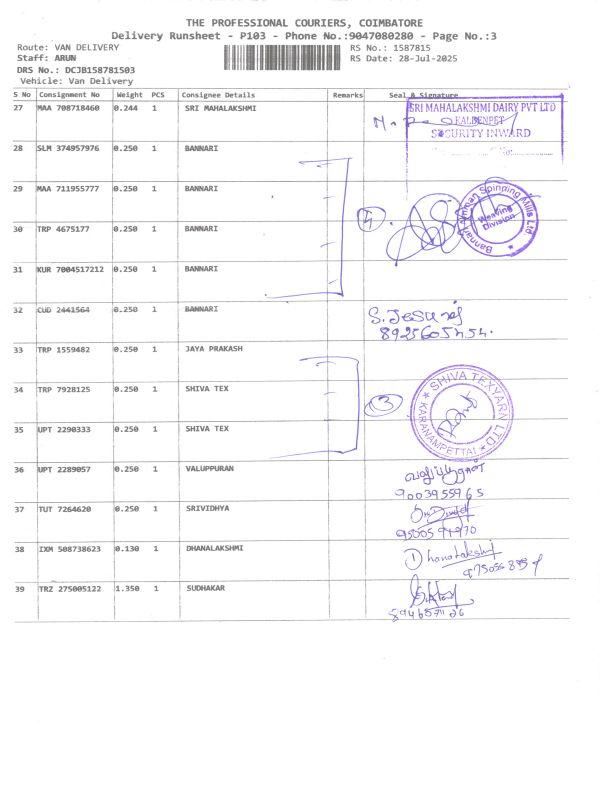 THE PROFESSIONAL COURIERS, COIMBATORE
Delivery Runsheet - P103 - Phone No.:9047080280 - Page No.:3
Route: VAN DELIVERY RS No.: 1587815
Staff: ARUN RS Date: 28-Jul-2025
DRS No.: DCJB158781503
Vehicle: Van Delivery
S No Consignment No Weight PCS Consignee Details Remarks Seal & Signature
27 MAA 708718460 0.244 1 SRI MAHALAKSHMI
SRI MAHALAKSHMI DAIRY PVT LTD
SECURITY INWARD
28 SLM 374957976 0.250 1 BANNARI
29 MAA 711955777 0.250 1 BANNARI
Bannari Amman Spinning Mills Ltd
Weaving Division
30 TRP 4675177 0.250 1 BANNARI
31 KUR 7004517212 0.250 1 BANNARI
32 CUD 2441564 0.250 1 BANNARI
S. Jesuraj
33 TRP 1559482 0.250 1 JAYA PRAKASH
34 TRP 7928125 0.250 1 SHIVA TEX
3
SHIVA TEXYARN LTD
KARANAMPETTAI
35 UPT 2290333 0.250 1 SHIVA TEX
36 UPT 2289057 0.250 1 VALUPPURAN
9003955965
37 TUT 7264620 0.250 1 SRIVIDHYA
38 IXM 508738623 0.130 1 DHANALAKSHMI
Dhanalakshmi
39 TRZ 275005122 1.350 1 SUDHAKAR